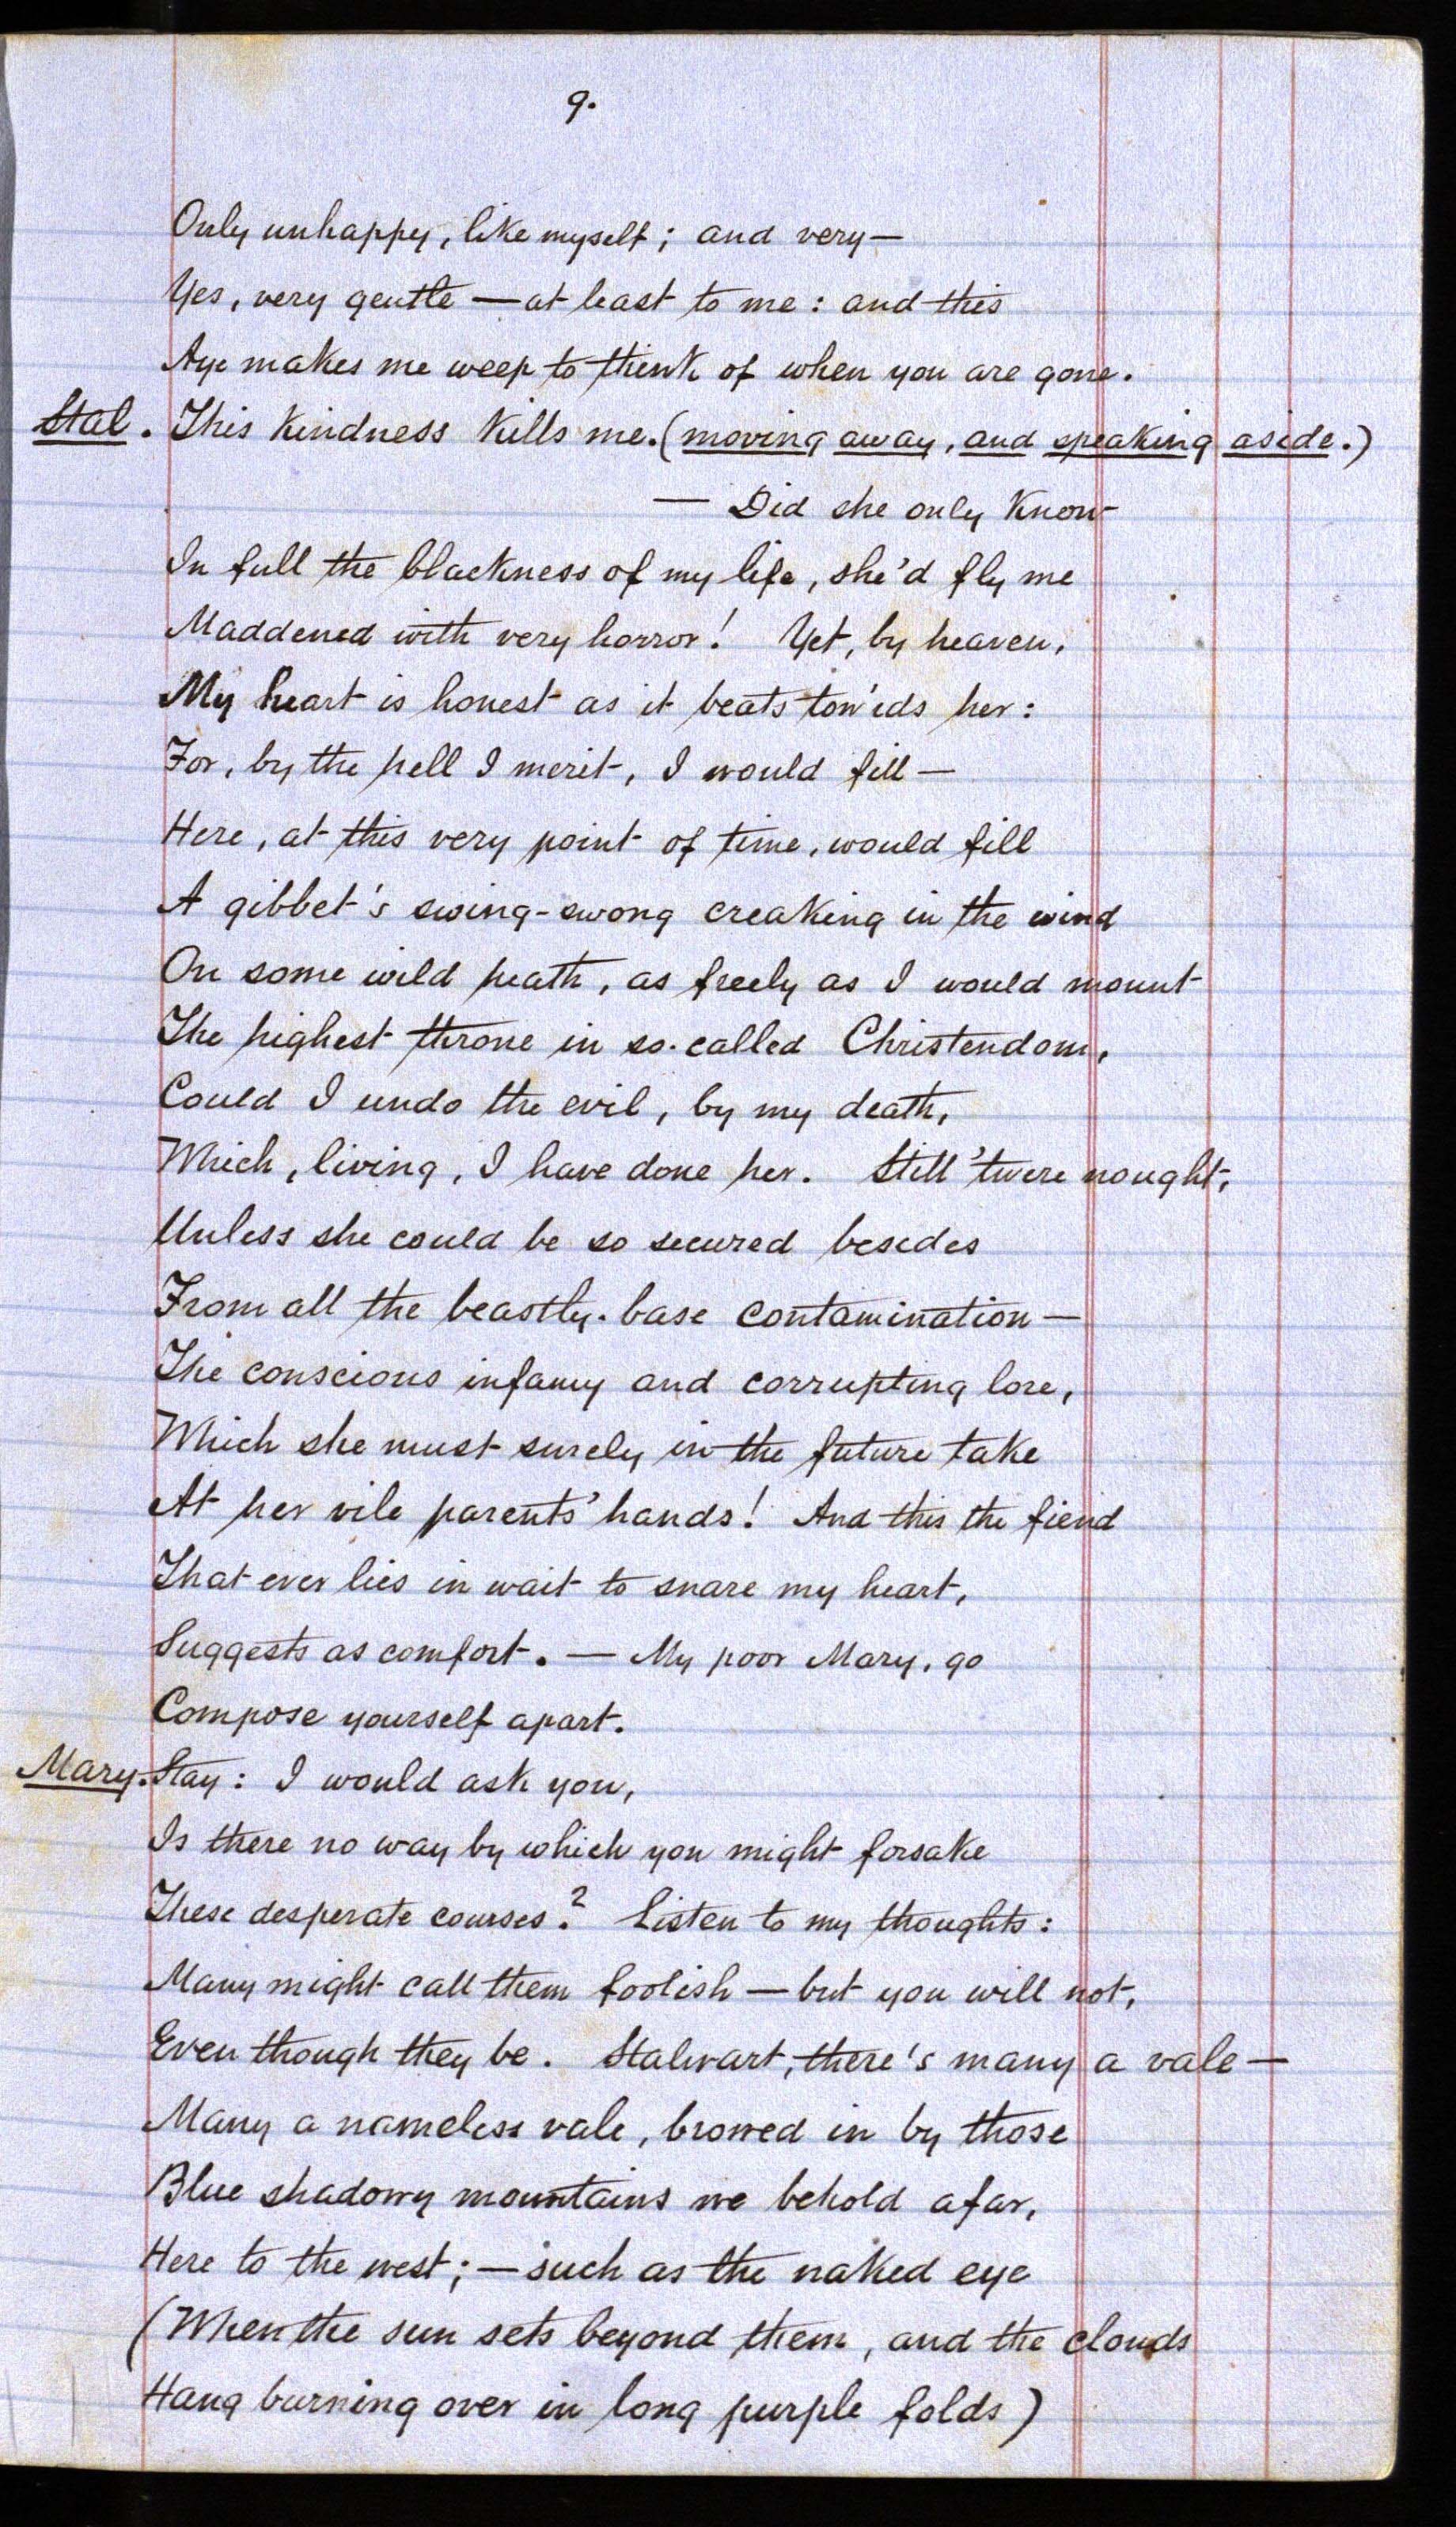 9.
Only unhappy, like myself; and very—
Yes, very gentle—at least to me: and this
Aye makes me weep to think of when you are gone.
Stal. This kindness kills me. (moving away, and speaking aside.)
— Did she only know
In full the blackness of my life, she'd fly me
Maddened with very horror! Yet, by heaven,
My heart is honest as it beats tow'ds her:
For, by the hell I merit, I would fill—
Here, at this very point of time, would fill
A gibbet's swing-swong creaking in the wind
On some wild heath, as freely as I would mount
The highest throne in so-called Christendom,
Could I undo the evil, by my death,
Which, living, I have done her. Still 'twere nought,
Unless she could be so secured besides
From all the beastly-base contamination—
The conscious infamy and corrupting lore,
Which she must surely in the future take
At her vile parents' hands! And this the fiend
That ever lies in wait to snare my heart,
Suggests as comfort. — My poor Mary, go
Compose yourself apart.
Mary. Stay: I would ask you,
Is there no way by which you might forsake
These desperate courses? Listen to my thoughts:
Many might call them foolish—but you will not,
Even though they be. Stalwart, there's many a vale—
Many a nameless vale, browed in by those
Blue shadowy mountains we behold afar,
Here to the west;—such as the naked eye
(When the sun sets beyond them, and the clouds
Hang burning over in long purple folds)